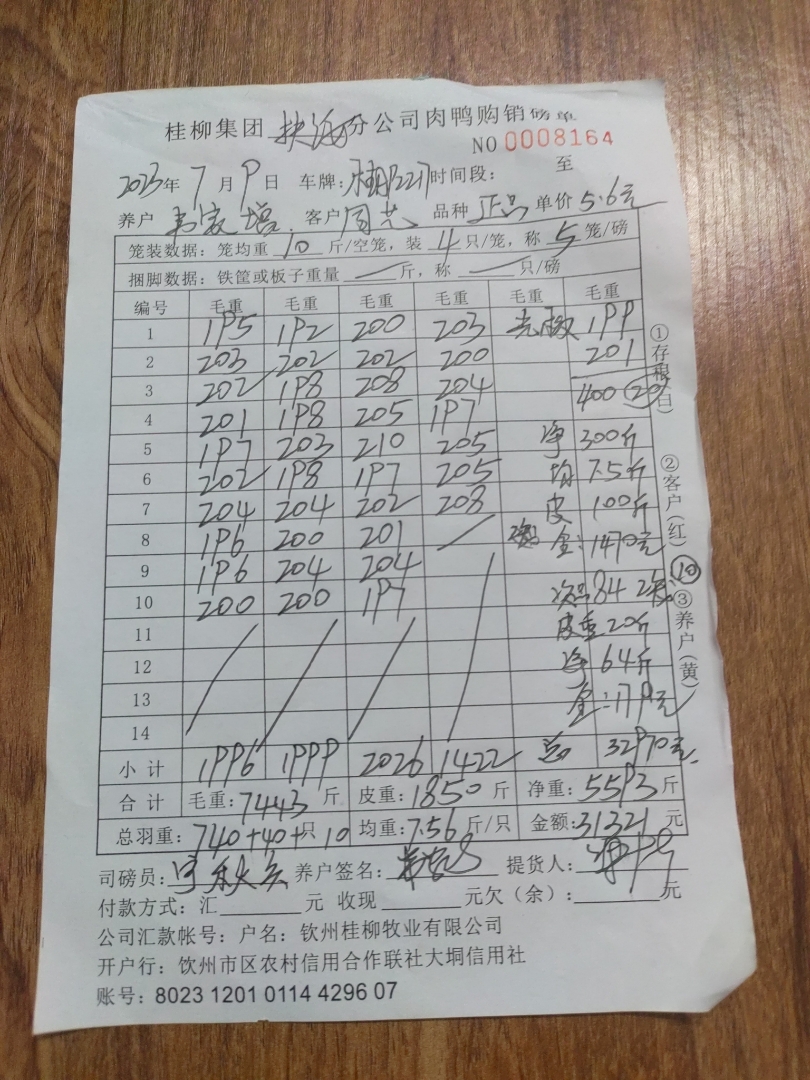 桂柳集团 扶海 分公司肉鸭购销磅单
NO 0008164
2023年 7 月 9 日 车牌: 时间段: 至
养户 韦家培 客户 周芯 品种 正品 单价 5.6元
笼装数据: 笼均重 10 斤/空笼, 装 4 只/笼, 称 5 笼/磅
捆脚数据: 铁筐或板子重量 斤, 称 只/磅
编号 毛重 毛重 毛重 毛重 毛重 毛重
1 195 192 200 203 199
2 203 202 202 200 201
3 202 198 208 204 400 20
4 201 198 205 197
5 197 203 210 205 净 300斤
6 202 198 197 205 均 7.5斤
7 204 204 202 208 皮 100斤
8 196 200 201 金:1470元
9 196 204 204 次品 84 10
10 200 200 197 皮重 20斤
11
12 净 64斤
13 金:179元
14
小计 1996 1999 2026 1422 总 32970元
合计 毛重:7443斤 皮重:1850斤 净重:5593斤
总羽重:740+40+只10 均重:7.56斤/只 金额:31321元
司磅员: 养户签名: 提货人:
付款方式: 汇 元 收现 元欠(余): 元
公司汇款帐号: 户名: 钦州桂柳牧业有限公司
开户行: 饮州市区农村信用合作联社大垌信用社
账号: 8023 1201 0114 4296 07
①存根(白)
②客户(红)
③养户(黄)